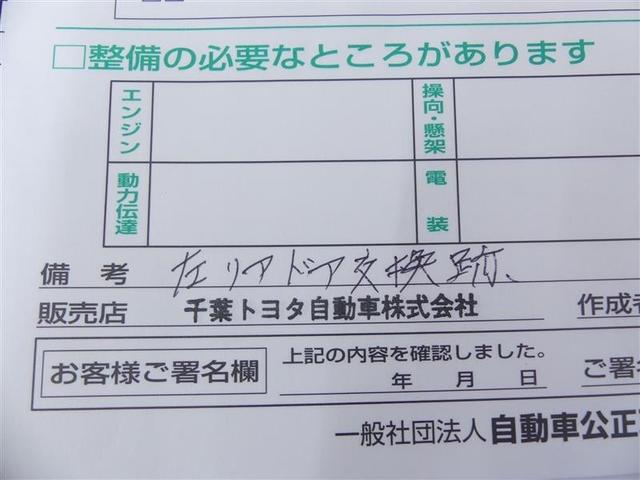 □整備の必要なところがあります
エンジン
操向・懸架
動力伝達
電装
備考 左リアドア交換跡、
販売店 千葉トヨタ自動車株式会社 作成者
お客様ご署名欄 上記の内容を確認しました。 ご署
年 月 日
一般社団法人 自動車公正